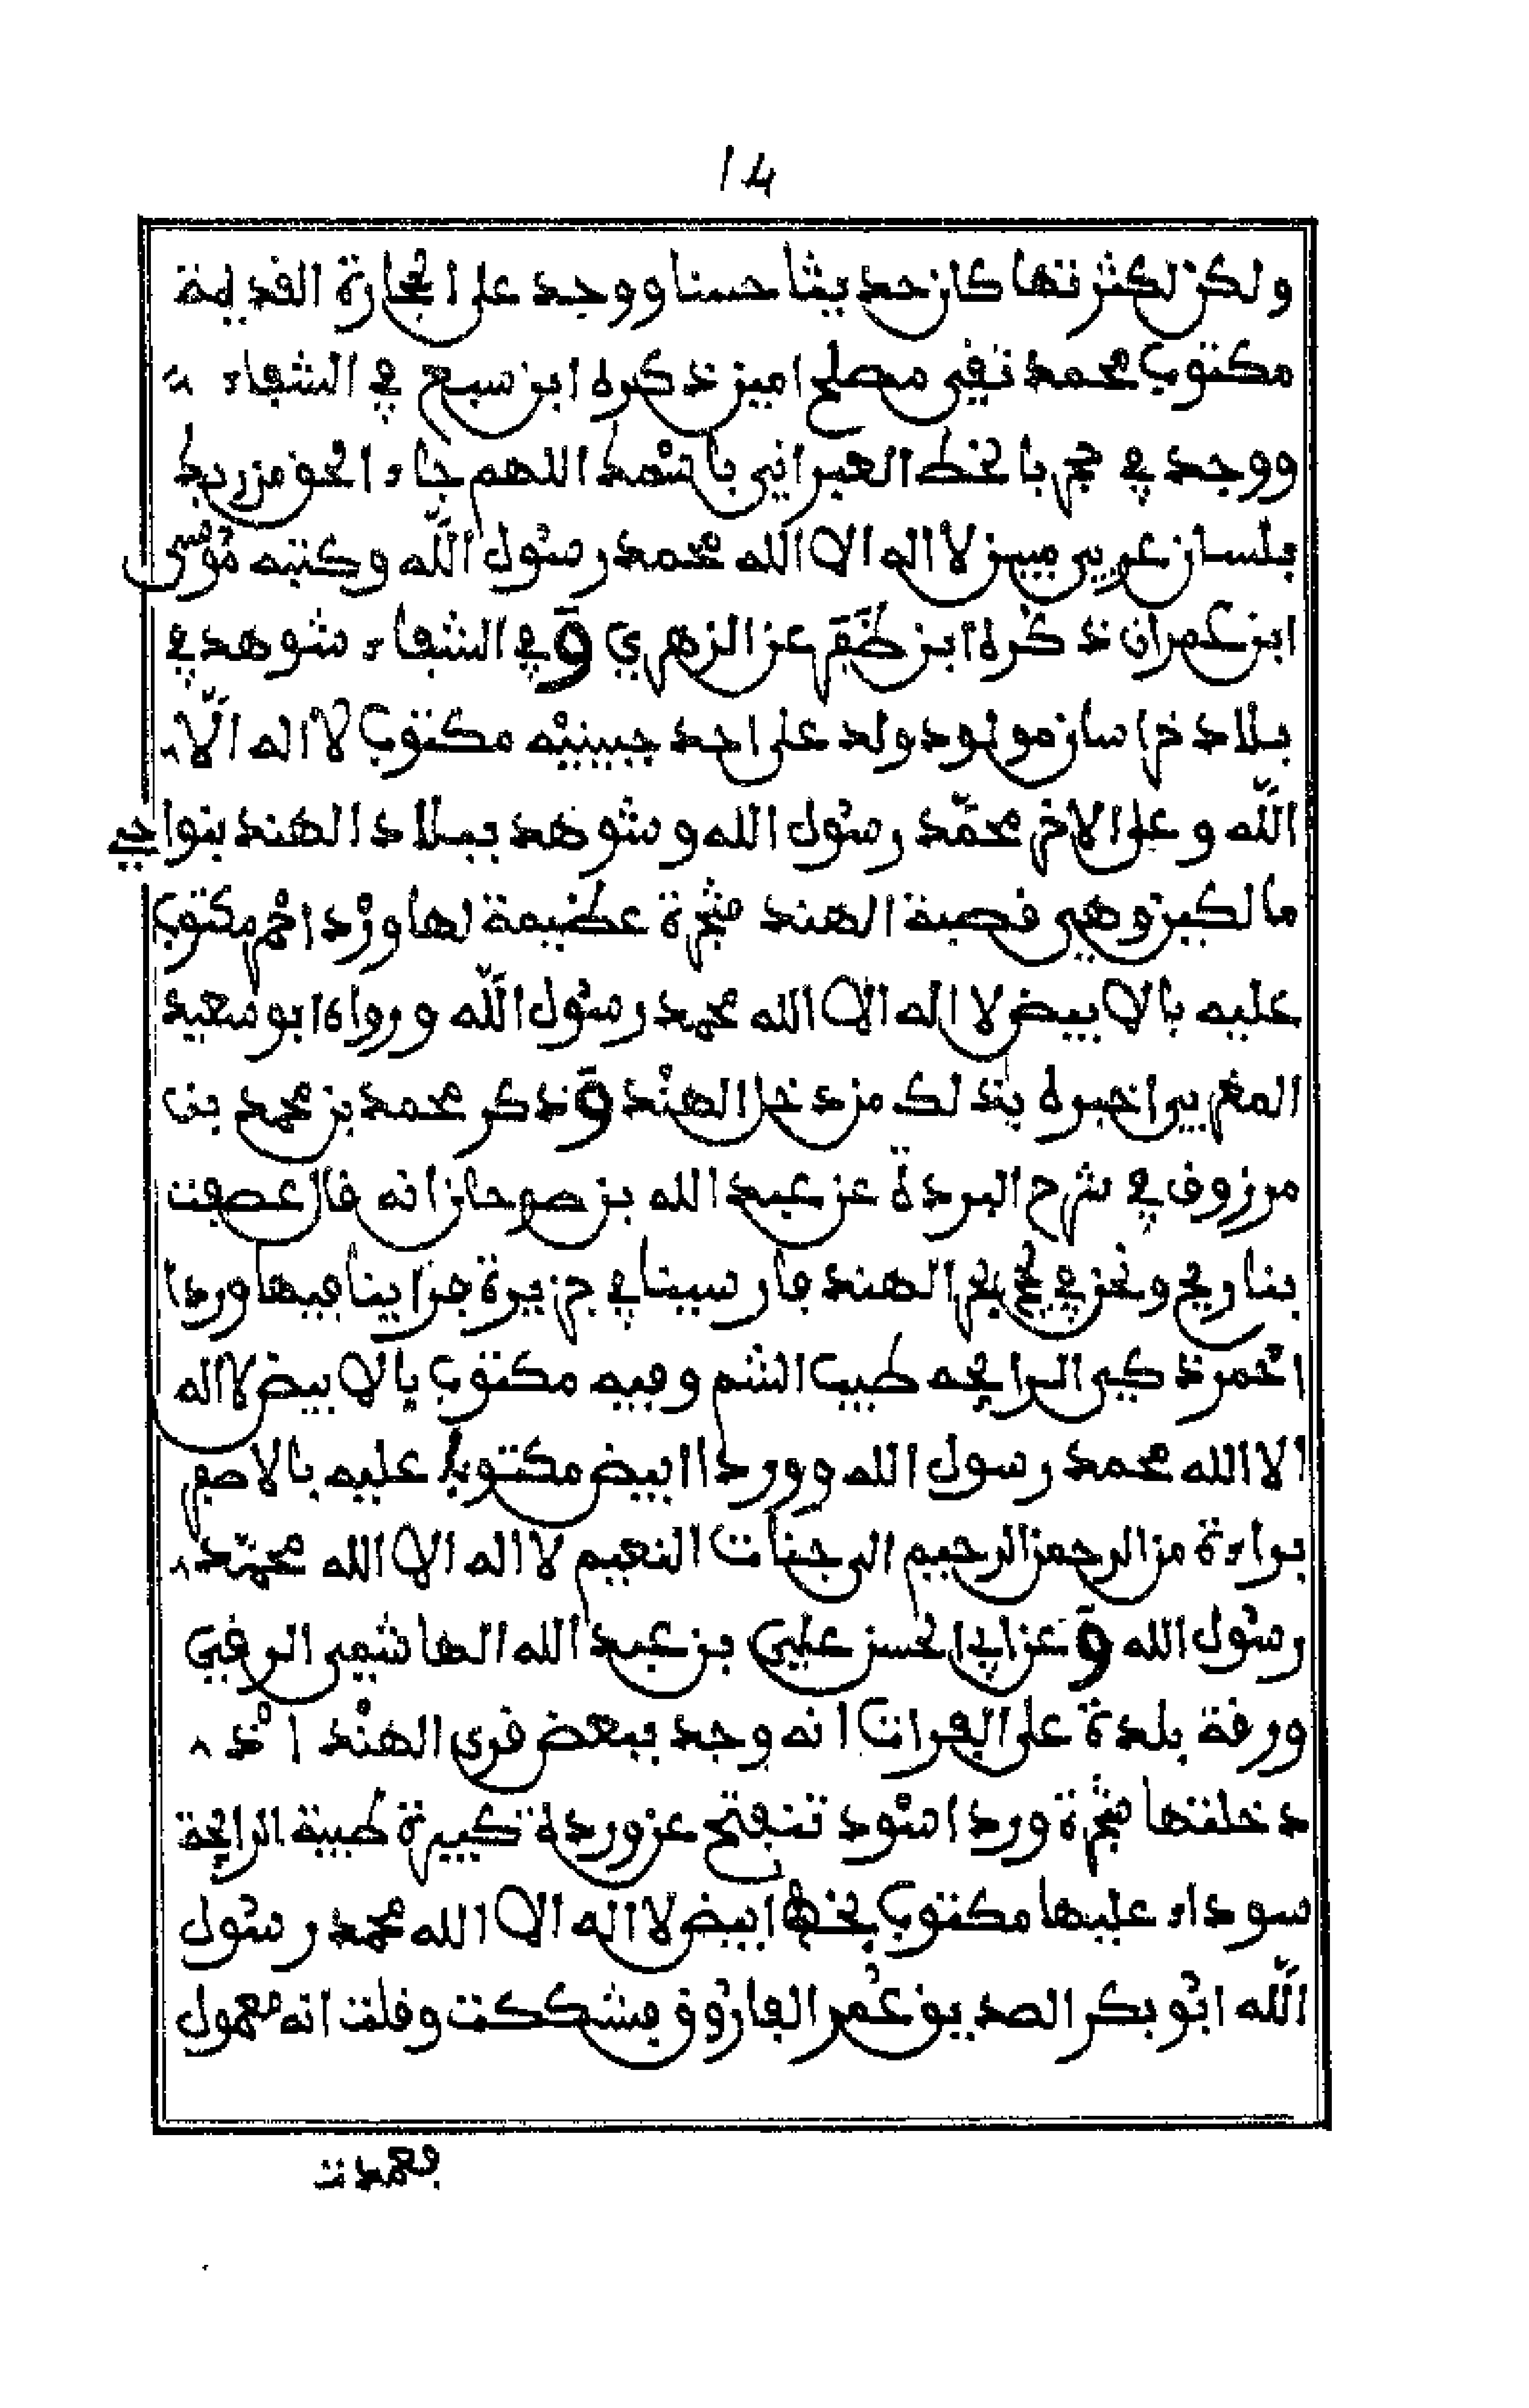 14
ولكن لكثرتها كان حديثا حسنا ووجد على الحجارة القديمة
مكتوب محمد تقي مصلح امين ذكره ابن سبع في الشفاء
ووجد في حجر بالخط العبراني باسمك اللهم جاء الحق من ربك
بلسان عربي مبين لا اله الا الله محمد رسول الله وكتبه موسى
ابن عمران ذكره ابن ظفر عن الزهري وفي الشفاء شوهد في
بلاد خراسان مولود ولد على احد جبينيه مكتوب لا اله الا
الله وعلى الاخر محمد رسول الله وشوهد ببلاد الهند بنواحي
مالكين وهي قصبة الهند شجرة عظيمة لها ورد احمر مكتوب
عليه بالابيض لا اله الا الله محمد رسول الله ورواه ابو سعيد
المغربي اخبره بذلك من دخل الهند وذكر محمد بن محمد بن
مرزوق في شرح البردة عن عبد الله بن صوحان انه قال عصفت
بنا ريح ونحن في لجج بحر الهند فارسينا في جزيرة فراينا فيها وردا
احمر ذكي الرايحه طيب الشم وفيه مكتوب بالابيض لا اله
الا الله محمد رسول الله ووردا ابيض مكتوبا عليه بالاصفر
براءة من الرحمن الرحيم الى جنات النعيم لا اله الا الله محمد
رسول الله وعن ابي الحسن علي بن عبد الله الهاشمي الرقي
ورقة بلدة على الفرات انه وجد ببعض قرى الهند اذ
دخلتها شجرة ورد اسود تنفتح عن وردة كبيرة طيبة الرايحة
سوداء عليها مكتوب بخط ابيض لا اله الا الله محمد رسول
الله ابو بكر الصديق عمر الفاروق فشككت وقلت انه معمول
فعمدت